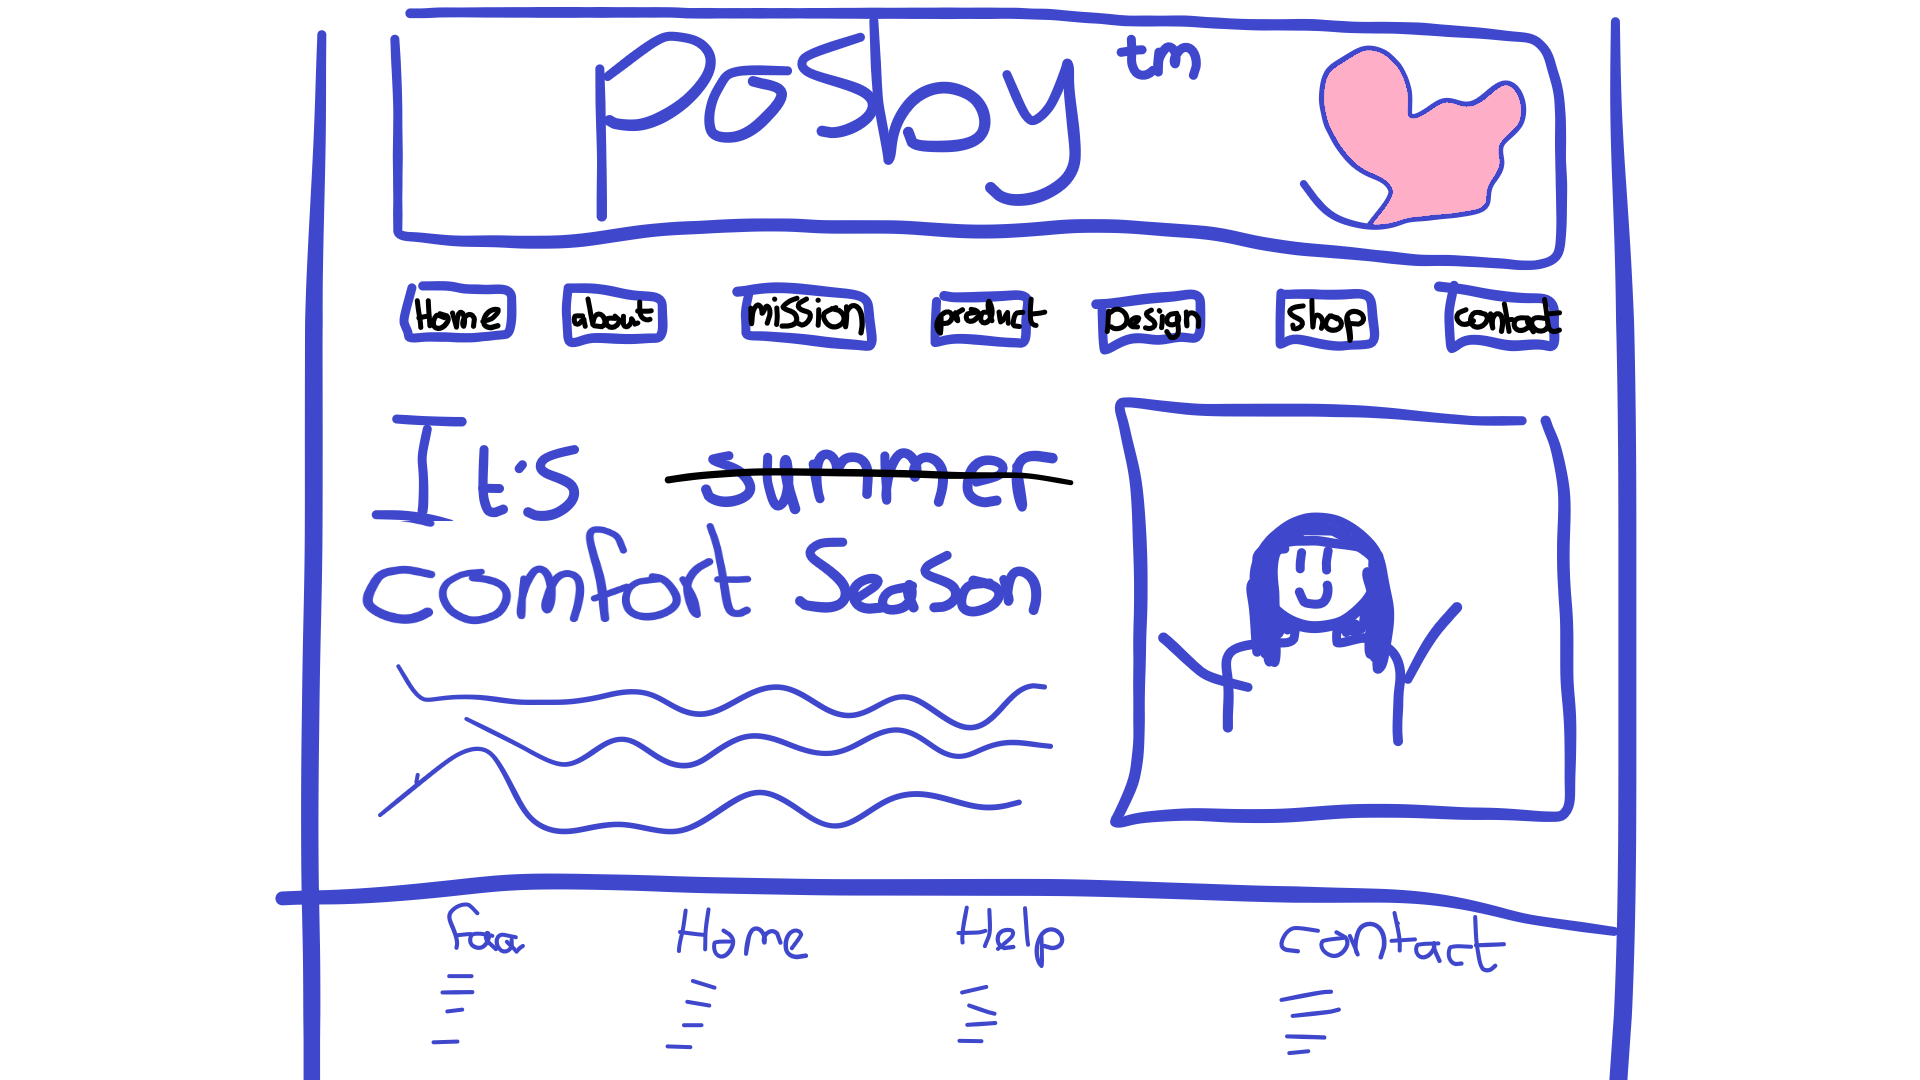 Posby tm
Home about mission product Design Shop contact
It's summer
comfort Season
faq Home Help contact